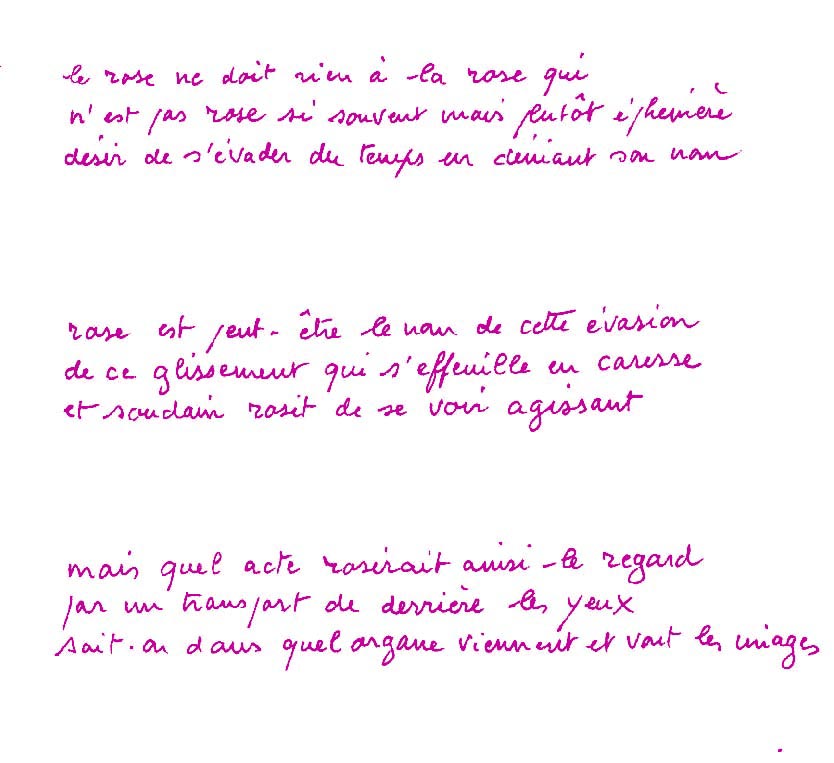 le rose ne doit rien à la rose qui
n'est pas rose si souvent mais plutôt éphémère
désir de s'évader du temps en déniant son nom
rose est peut-être le nom de cette évasion
de ce glissement qui s'effeuille en caresse
et soudain rosit de se voir agissant
mais quel acte roserait ainsi le regard
par un transport de derrière les yeux
sait-on dans quel organe viennent et vont les images